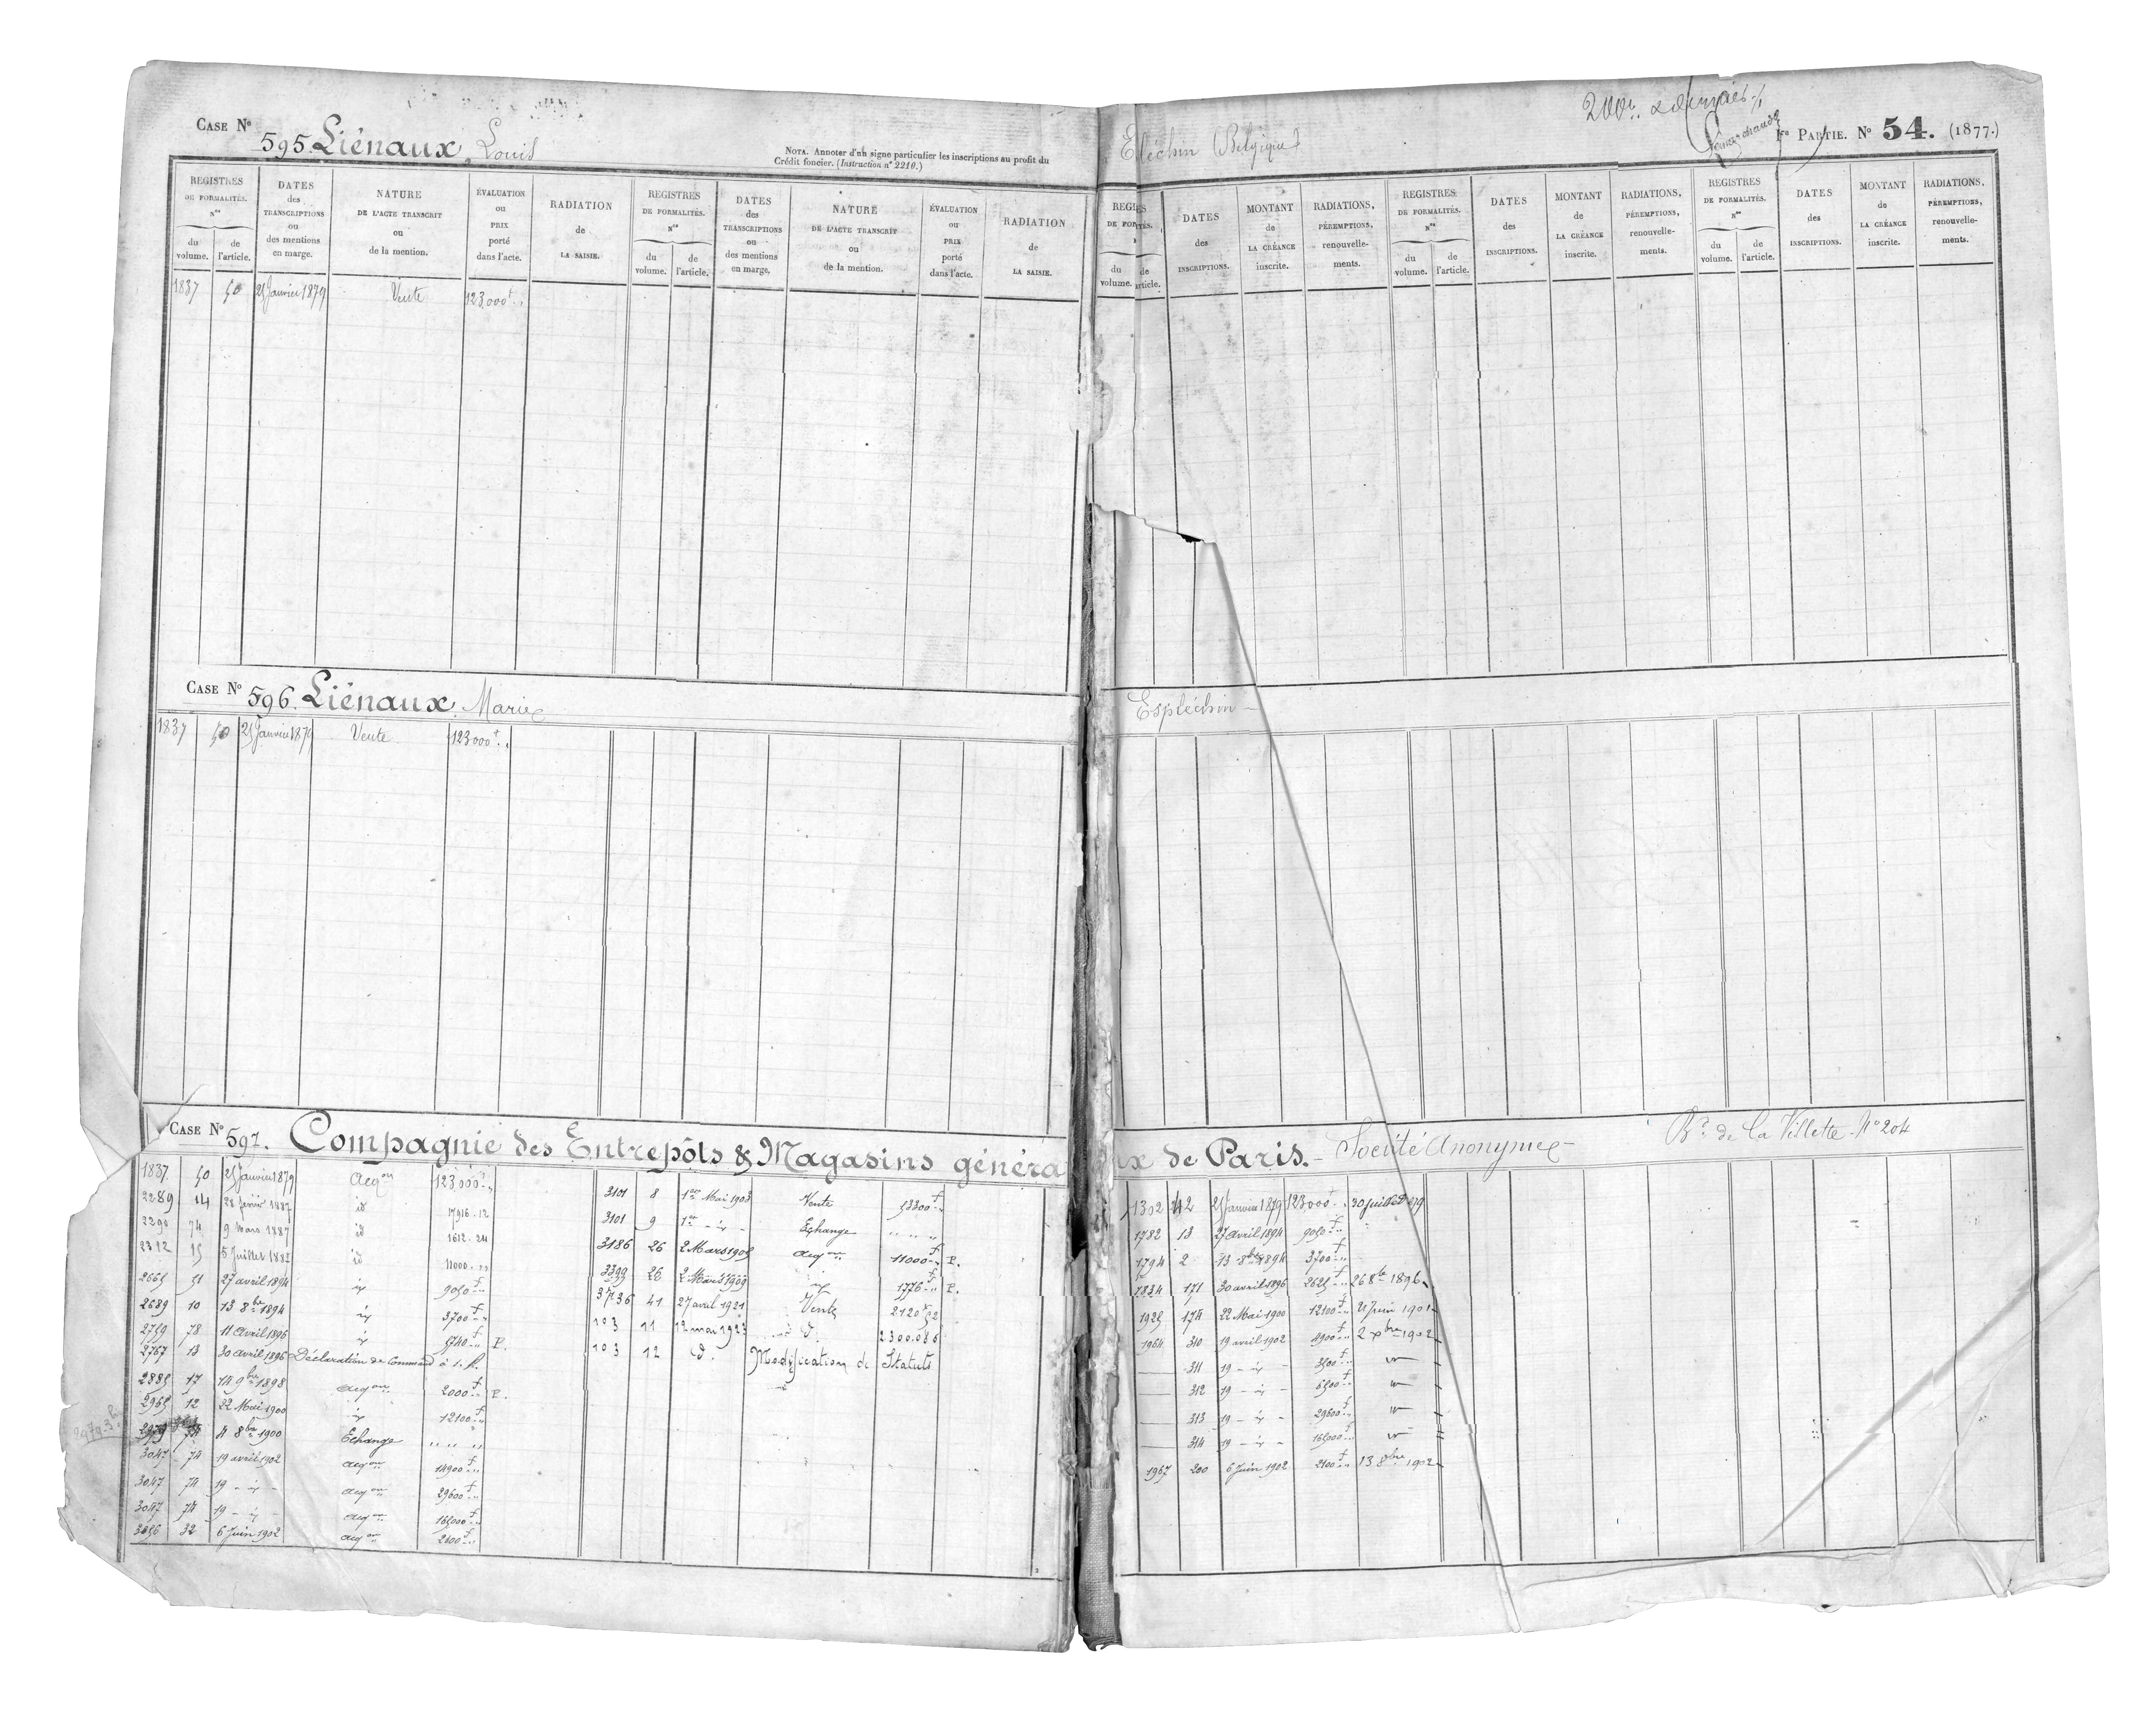 1re PARTIE. No 54. (1877.)
CASE No 595. Liénaux Louis
(Belgique)
NOTA. Annoter d'un signe particulier les inscriptions au profit du
Crédit foncier. (Instruction n° 2210.)
REGISTRES DE FORMALITÉS. Nos du volume. de l'article. DATES des TRANSCRIPTIONS ou des mentions en marge. NATURE DE L'ACTE TRANSCRIT ou de la mention. ÉVALUATION ou PRIX porté dans l'acte. RADIATION de LA SAISIE. REGISTRES DE FORMALITÉS. Nos du volume. de l'article. DATES des TRANSCRIPTIONS ou des mentions en marge. NATURE DE L'ACTE TRANSCRIT ou de la mention. ÉVALUATION ou PRIX porté dans l'acte. RADIATION de LA SAISIE.
REGISTRES DE FORMALITÉS. du volume. de l'article. DATES des INSCRIPTIONS. MONTANT de LA CRÉANCE inscrite. RADIATIONS, PÉREMPTIONS, renouvellements. REGISTRES DE FORMALITÉS. Nos du volume. de l'article. DATES des INSCRIPTIONS. MONTANT de LA CRÉANCE inscrite. RADIATIONS, PÉREMPTIONS, renouvellements. REGISTRES DE FORMALITÉS. Nos du volume. de l'article. DATES des INSCRIPTIONS. MONTANT de LA CRÉANCE inscrite. RADIATIONS, PÉREMPTIONS, renouvellements.
1837 50 25 Janvier 1879 Vente 123,000f
CASE No 596. Liénaux Marie
Espléchin
1837 50 25 Janvier 1879 Vente 123000f
CASE No 597. Compagnie des Entrepôts & Magasins généraux de Paris. - Société Anonyme - Bd de la Villette No 204
1837 50 25 Janvier 1879 Acqon 123000f
2289 14 1887 id 17916.12
2290 74 9 Mars 1887 id 1612.24
15 5 Juillet 1887 id 11000
2665 51 27 avril 1894 id 9050f
2689 10 13 8bre 1894 id 3700f
2759 78 11 Avril 1896 id 5740f P.
2767 13 30 avril 1896 Déclaration de Command à 1. f.
2885 17 14 9bre 1898 acqon 2000f P.
2965 12 22 Mai 1900 id 12100f
2979 4 8bre 1900 Echange
3047 74 19 avril 1902 acqon 14900f
3047 74 19 - id - acqon 29600f
3047 74 19 - id - acqon 165000f
3056 32 6 Juin 1902 acqon 2100f
3101 8 1er Mai 1903 Vente 53300f
3101 9 1er - id - Echange
3186 26 2 Mars 1905 acqon 11000f P.
3399 26 2 Mars 1909 id 1776f P.
3736 41 27 avril 1921 Vente 2120f 52
103 11 12 mai 1923 d.
103 12 d. Modification de Statuts
1302 42 25 Janvier 1879 123000f 30 juillet 1879
1782 13 27 avril 1894 9050f
1794 2 13 8bre 1894 3700f
1834 171 30 avril 1896 2625f 26 8bre 1896
1925 174 22 Mai 1900 12100f Juin 1901
1964 310 19 avril 1902 4900f 2 Xbre 1902
311 19 - id - 3500f
312 19 - id - 6500f
313 19 - id - 29600f
314 19 - id - 165000f
1967 200 6 Juin 1902 2100f 13 8bre 1902